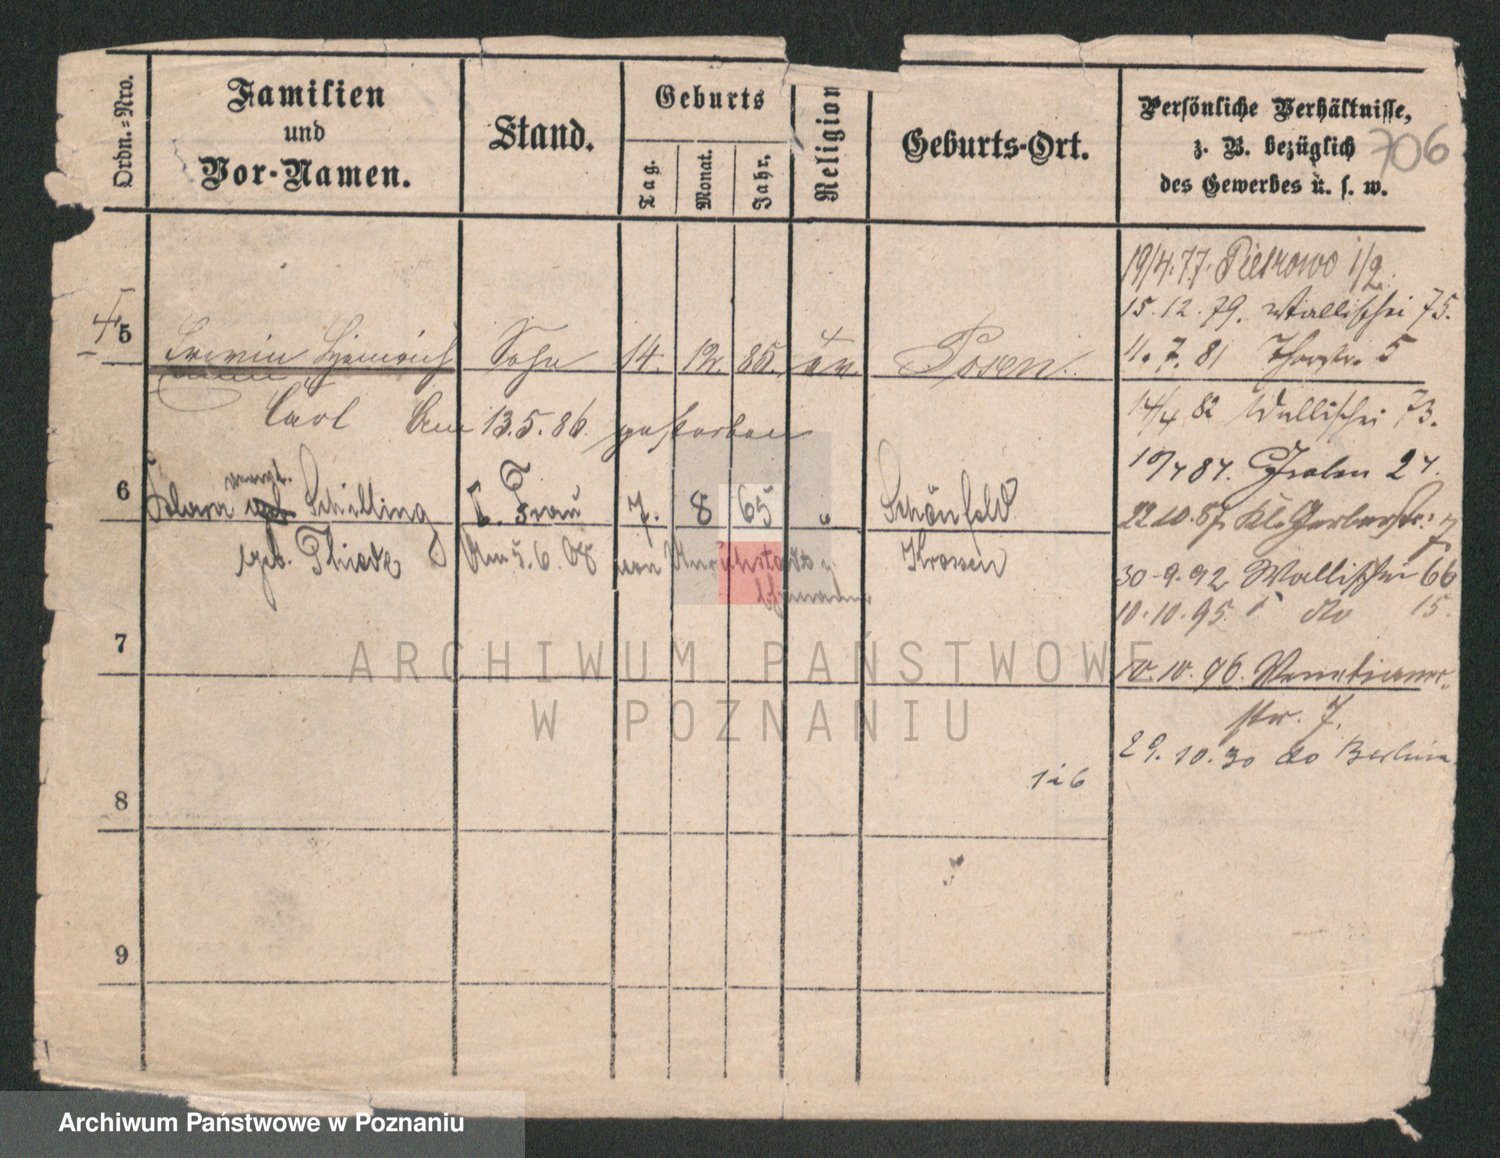 Ordn.-Nro.
Familien
und
Vor-Namen.
Stand.
Geburts
Tag.
Monat.
Jahr.
Religion
Geburts-Ort.
Persönliche Verhältnisse,
z. B. bezüglich
des Gewerbes u. s. w.
706
19/4.77. Pietrowo 1/2.
15.12.79. Wallischei 75.
5 Erwin Heinrich Sohn 14. 12. 85. ev. Posen
11.7.81 Thorstr. 5
Carl Am 13.5.86. gestorben
14/4 82 Wallischei 73.
19/7 87. 27.
6 Clara Schilling Frau 7. 8 65 " Schönfeld
22.10.87. Kl. Gerberstr. 7
geb. Thiede Am 5.6.08 von Krossen
30.9.92 Wallischei 66
10.10.95. do 15.
7
10.10.96. Venetianer-
str. 7.
29.10.30 do Berlina
1 i 6
8
9
ARCHIWUM PAŃSTWOWE
W POZNANIU
Archiwum Państwowe w Poznaniu